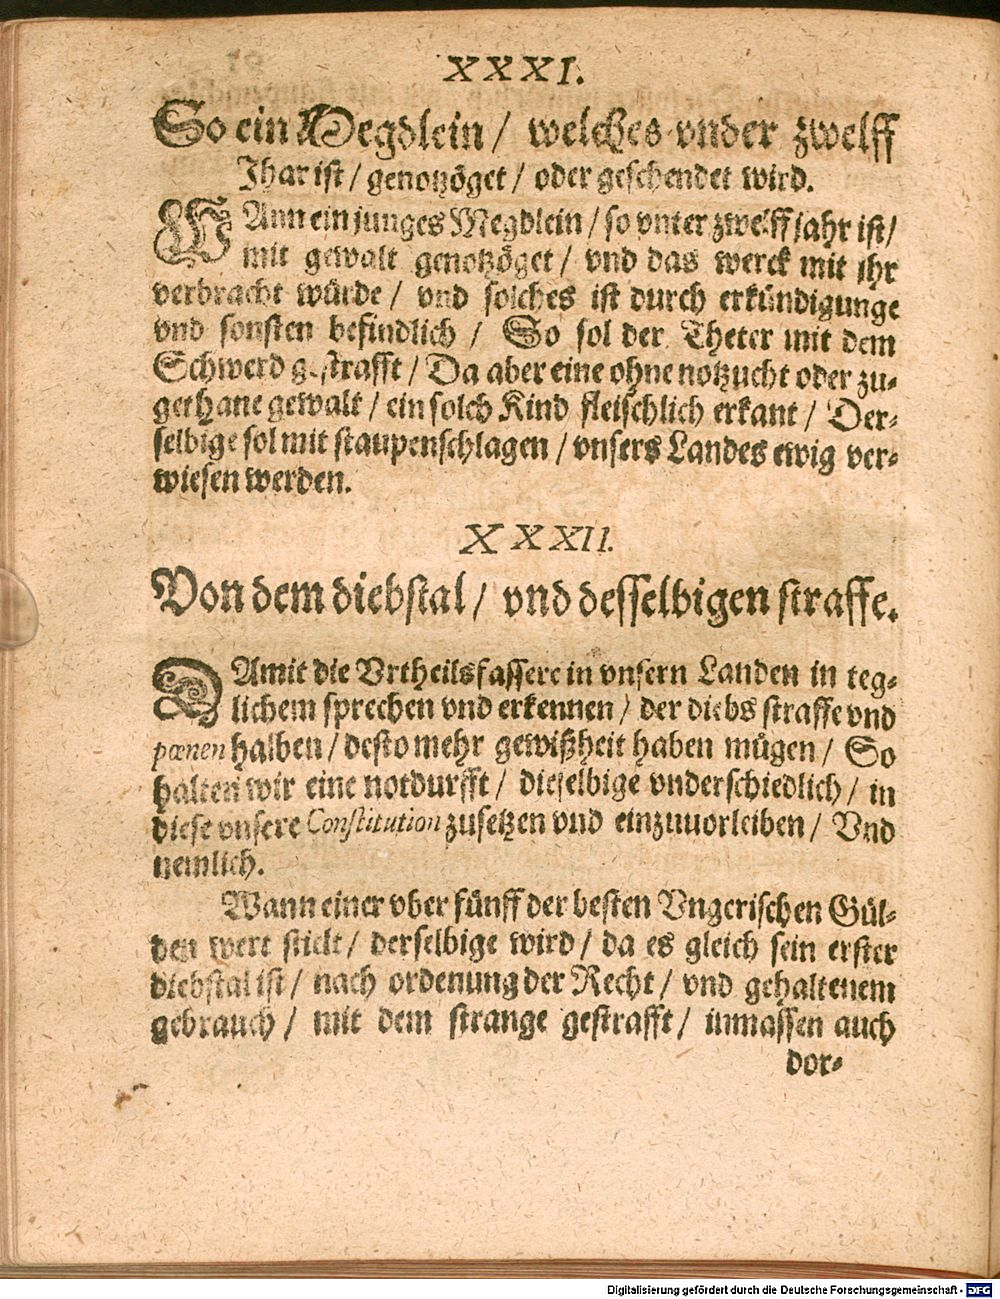 XXXI.
So ein Megdlein / welches vnder zwelff
Jhar ist / genotzöget / oder geschendet wird.
WAnn ein junges Megdlein / so vnter zwelff jahr ist /
mit gewalt genotzöget / vnd das werck mit ihr
verbracht würde / vnd solches ist durch erkündigunge
vnd sonsten befindlich / So sol der Theter mit dem
Schwerd gestrafft / Da aber eine ohne notzucht oder zu-
gethane gewalt / ein solch Kind fleischlich erkant / Der-
selbige sol mit staupenschlagen / vnsers Landes ewig ver-
wiesen werden.
XXXII.
Von dem diebstal / vnd desselbigen straffe.
DAmit die Vrtheilsfassere in vnsern Landen in teg-
lichem sprechen vnd erkennen / der diebs straffe vnd
pœnen halben / desto mehr gewißheit haben mügen / So
halten wir eine notdurfft / dieselbige vnderschiedlich / in
diese vnsere Constitution zusetzen vnd einzuuorleiben / Vnd
nemlich.
Wann einer vber fünff der besten Vngerischen Gül-
den wert stielt / derselbige wird / da es gleich sein erster
diebstal ist / nach ordenung der Recht / vnd gehaltenem
gebrauch / mit dem strange gestrafft / inmassen auch
dor-
Digitalisierung gefördert durch die Deutsche Forschungsgemeinschaft - DFG